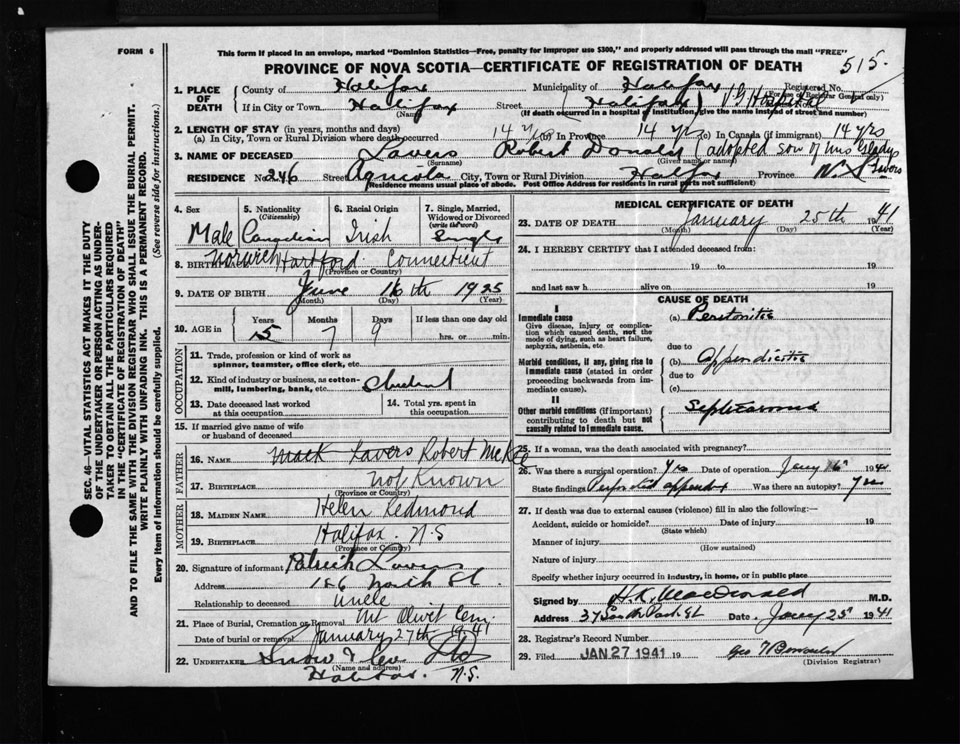 FORM 6
This form if placed in an envelope, marked "Dominion Statistics—Free, penalty for improper use $300," and properly addressed will pass through the mail "FREE"
PROVINCE OF NOVA SCOTIA—CERTIFICATE OF REGISTRATION OF DEATH
515.
1. PLACE OF DEATH
County of Halifax Municipality of Halifax Registered No.
(For use of Registrar General only)
If in City or Town Halifax Street (Halifax) V.G. Hospital
(Name) (If death occurred in a hospital or institution, give the name instead of street and number)
2. LENGTH OF STAY (in years, months and days)
(a) In City, Town or Rural Division where death occurred 14 yrs (b) In Province 14 yrs (c) In Canada (if immigrant) 14 yrs
3. NAME OF DECEASED Lavers Robert Donald (adopted son of Mrs Gladys
(Surname) (Given name or names)
RESIDENCE No. 246 Street Agricola City, Town or Rural Division Halifax Province N.S.
(Residence means usual place of abode. Post Office Address for residents in rural parts not sufficient)
4. Sex
Male
5. Nationality
(Citizenship)
Canadian
6. Racial Origin
Irish
7. Single, Married, Widowed or Divorced
(write the word)
Single
8. BIRTHPLACE Norwich Hartford Connecticut
(Province or Country)
9. DATE OF BIRTH June 16th 1925
(Month) (Day) (Year)
10. AGE in
Years Months Days If less than one day old
15 7 9 hrs. or min.
OCCUPATION
11. Trade, profession or kind of work as spinner, teamster, office clerk, etc.
12. Kind of industry or business, as cotton-mill, lumbering, bank, etc. Student
13. Date deceased last worked at this occupation
14. Total yrs. spent in this occupation
15. If married give name of wife or husband of deceased
FATHER
16. NAME Mack Lavers Robert McKee
17. BIRTHPLACE not Known
(Province or Country)
MOTHER
18. MAIDEN NAME Helen Redmond
19. BIRTHPLACE Halifax N.S
(Province or Country)
20. Signature of informant Patrick Lavers
Address 186 North St.
Relationship to deceased uncle
21. Place of Burial, Cremation or Removal Mt Olivet Cem.
Date of burial or removal January 27th 1941
22. UNDERTAKER Snow & Co Ltd
(Name and address)
Halifax. N.S.
MEDICAL CERTIFICATE OF DEATH
23. DATE OF DEATH January 25th 1941
(Month) (Day) (Year)
24. I HEREBY CERTIFY that I attended deceased from:
19 to 19
and last saw h alive on 19
CAUSE OF DEATH
I
Immediate cause
Give disease, injury or complication which caused death, not the mode of dying, such as heart failure, asphyxia, asthenia, etc.
(a) Peritonitis
due to
Morbid conditions, if any, giving rise to immediate cause (stated in order proceeding backwards from immediate cause).
(b) Appendicitis
due to
(c)
II
Other morbid conditions (if important) contributing to death but not causally related to immediate cause.
Septicaemia
25. If a woman, was the death associated with pregnancy?
26. Was there a surgical operation? Yes Date of operation Jany 16 1941
State findings Perforated appendix Was there an autopsy? Yes
27. If death was due to external causes (violence) fill in also the following:—
Accident, suicide or homicide? Date of injury 19
(State which)
Manner of injury
(How sustained)
Nature of injury
Specify whether injury occurred in industry, in home, or in public place
Signed by H.K. MacDonald M.D.
Address 37 South Park St Date Jany 25 1941
28. Registrar's Record Number
29. Filed JAN 27 1941 19
(Division Registrar)
SEC. 46—VITAL STATISTICS ACT MAKES IT THE DUTY OF THE UNDERTAKER OR PERSON ACTING AS UNDERTAKER TO OBTAIN ALL THE PARTICULARS REQUIRED IN THE "CERTIFICATE OF REGISTRATION OF DEATH" AND TO FILE THE SAME WITH THE DIVISION REGISTRAR WHO SHALL ISSUE THE BURIAL PERMIT.
WRITE PLAINLY WITH UNFADING INK. THIS IS A PERMANENT RECORD.
Every item of information should be carefully supplied. (See reverse side for instructions.)